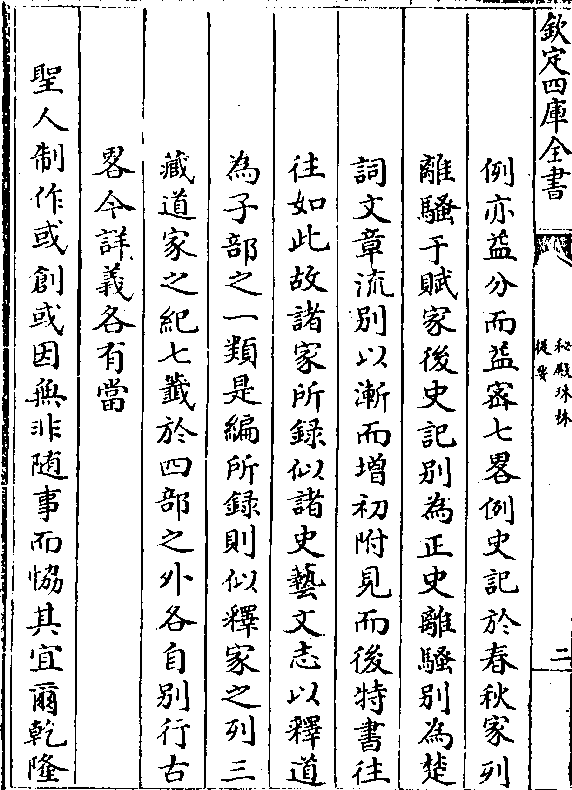 欽定四庫全書
秘殿珠林
提要
二
例亦益分而益密七畧例史記於春秋家列
離騷于賦家後史記別為正史離騷別為楚
詞文章流別以漸而增初附見而後特書往
往如此故諸家所録似諸史藝文志以釋道
為子部之一類是編所録則似釋家之列三
藏道家之紀七籖於四部之外各自別行古
畧今詳義各有當
聖人制作或創或因無非随事而恊其宜爾乾隆